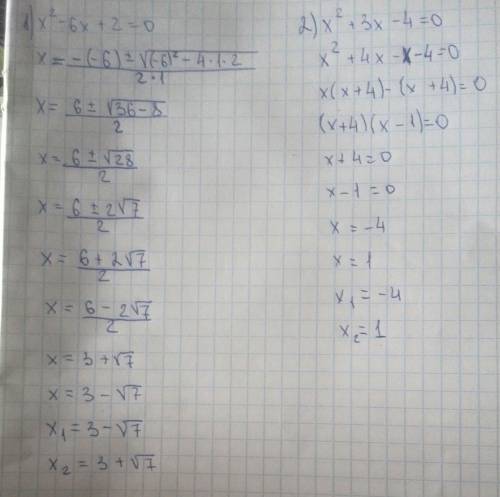 1) x² - 6x + 2 = 0
x = -(-6) ± √(-6)² - 4·1·2 / 2·1
x = 6 ± √36 - 8 / 2
x = 6 ± √28 / 2
x = 6 ± 2√7 / 2
x = 6 + 2√7 / 2
x = 6 - 2√7 / 2
x = 3 + √7
x = 3 - √7
x₁ = 3 - √7
x₂ = 3 + √7
2) x² + 3x - 4 = 0
x² + 4x - x - 4 = 0
x(x + 4) - (x + 4) = 0
(x + 4)(x - 1) = 0
x + 4 = 0
x - 1 = 0
x = -4
x = 1
x₁ = -4
x₂ = 1